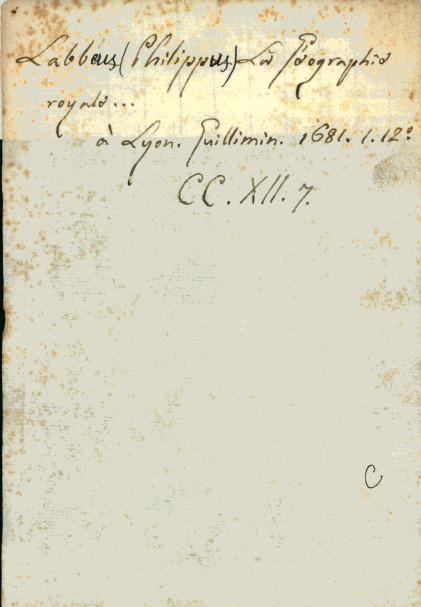 Labbeus (Philippus) La Géographie
royale...
à Lyon. Guillimin. 1681. 1. 12°
CC. XII. 7.
C